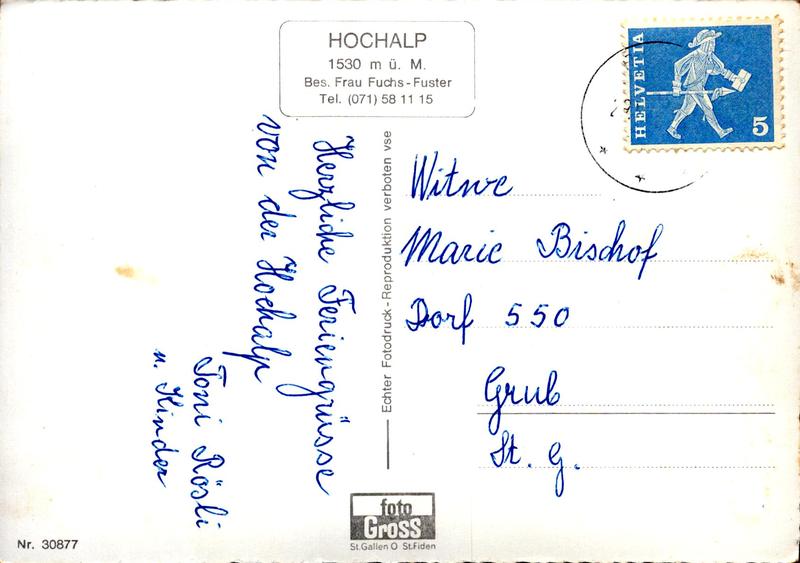 HOCHALP
1530 m ü. M.
Bes. Frau Fuchs-Fuster
Tel. (071) 58 11 15
HELVETIA
5
Herzliche Feriengrüsse
von der Hochalp
Toni Rösli
u. Kinder
Echter Fotodruck - Reproduktion verboten vse
Witwe
Marie Bischof
Dorf 550
Grub
St. G.
foto
Gross
St.Gallen O St.Fiden
Nr. 30877